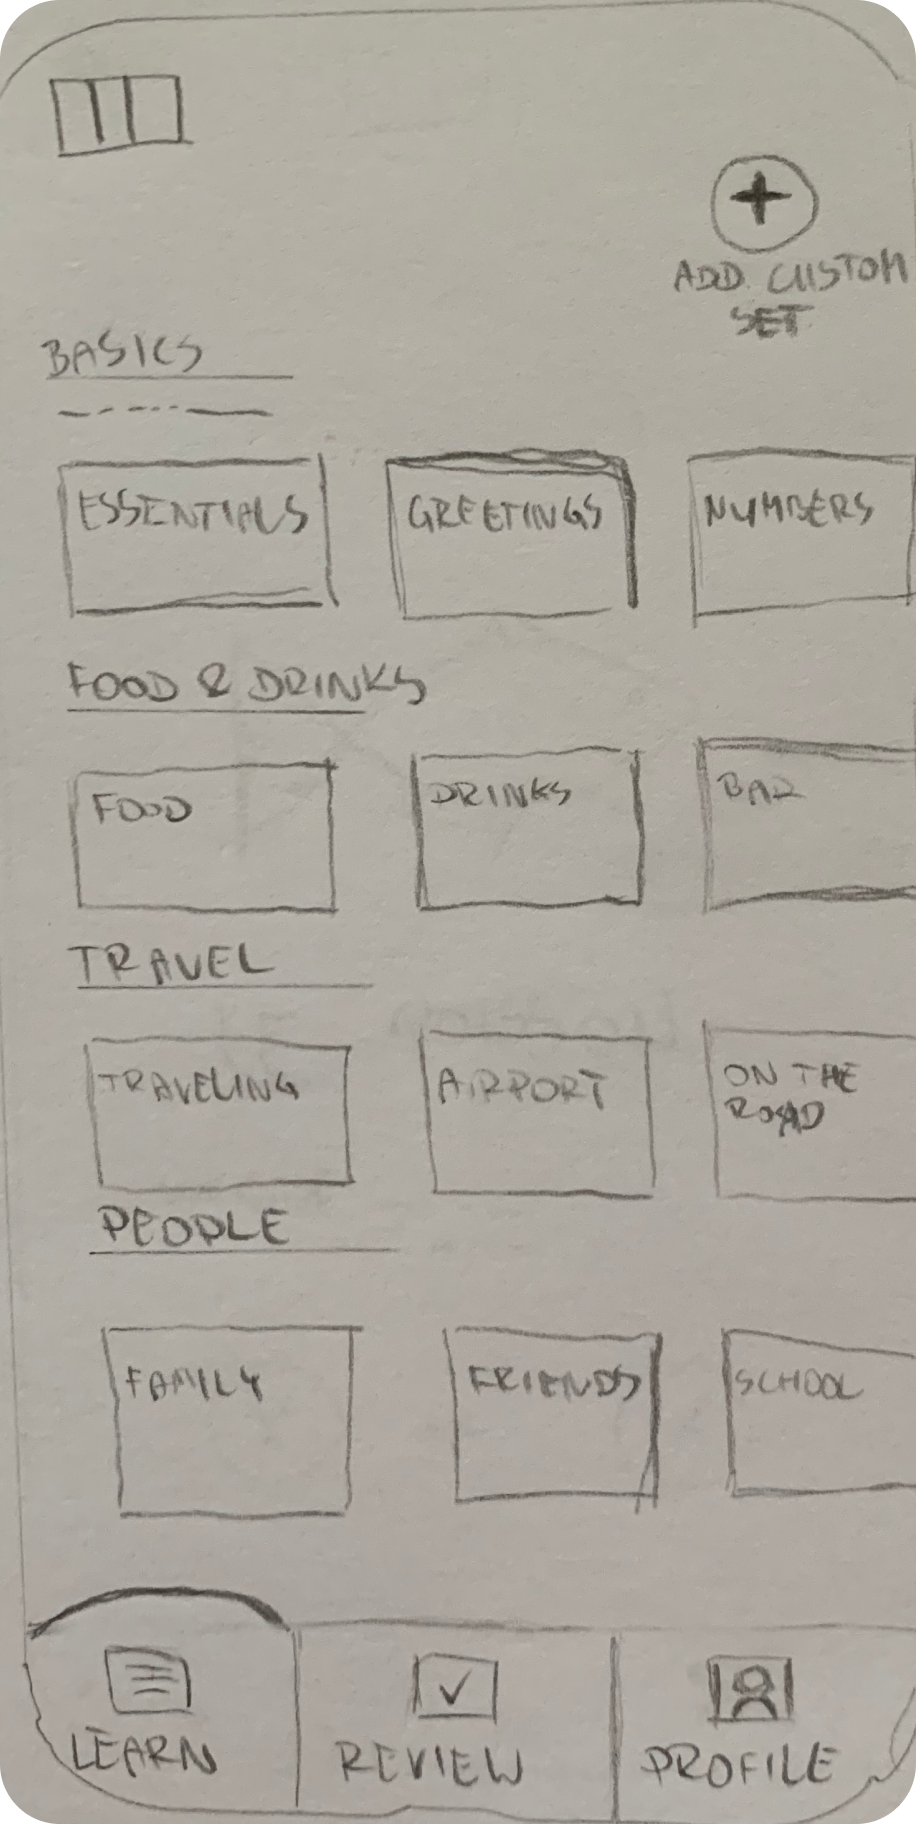 ADD CUSTOM
SET
BASICS
ESSENTIALS
GREETINGS
NUMBERS
FOOD & DRINKS
FOOD
DRINKS
BAR
TRAVEL
TRAVELING
AIRPORT
ON THE
ROAD
PEOPLE
FAMILY
FRIENDS
SCHOOL
LEARN
REVIEW
PROFILE